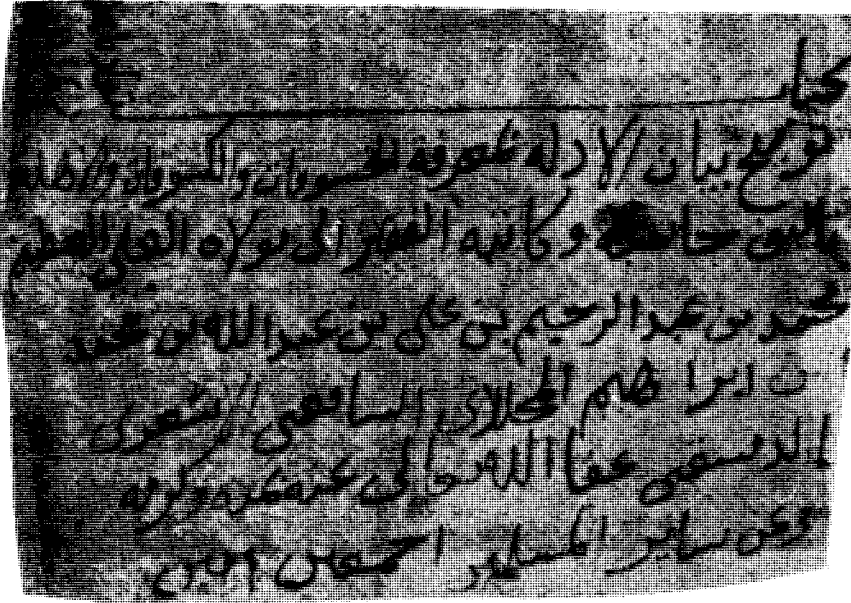 كتاب
توضيح بيان الادله لمعرفة الخسوفات والكسوفات والاهله
تاليف جامعه وكاتبه الفقير الى مولاه العلي العظيم
محمد بن عبد الرحيم بن علي بن عبد الله بن محمد
بن ابراهيم الشافعي الاشعري
الدمشقي عفا الله تعالى عنه بمنه وكرمه
وعن ساير المسلمين اجمعين امين